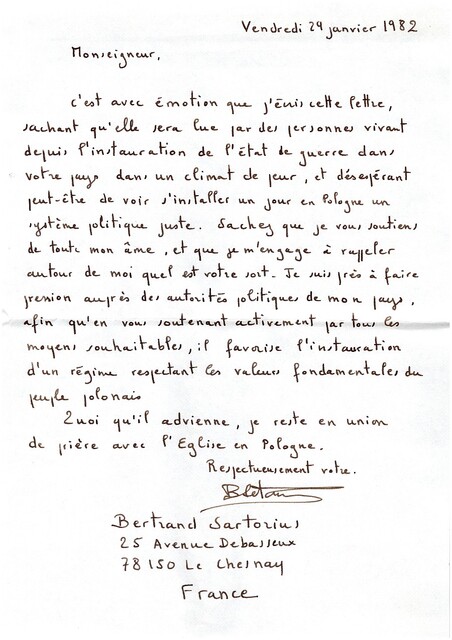 Vendredi 29 janvier 1982
Monseigneur,
c'est avec émotion que j'écris cette lettre,
sachant qu'elle sera lue par des personnes vivant
depuis l'instauration de l'état de guerre dans
votre pays dans un climat de peur, et désespérant
peut-être de voir s'installer un jour en Pologne un
système politique juste. Sachez que je vous soutiens
de toute mon âme, et que je m'engage à rappeler
autour de moi quel est votre sort. Je suis près à faire
pression auprès des autorités politiques de mon pays,
afin qu'en vous soutenant activement par tous les
moyens souhaitables, il favorise l'instauration
d'un régime respectant les valeurs fondamentales du
peuple polonais
Quoi qu'il advienne, je reste en union
de prière avec l'Eglise en Pologne.
Respectueusement votre.
Bertrand Sartorius
25 Avenue Debasseux
78150 Le Chesnay
France